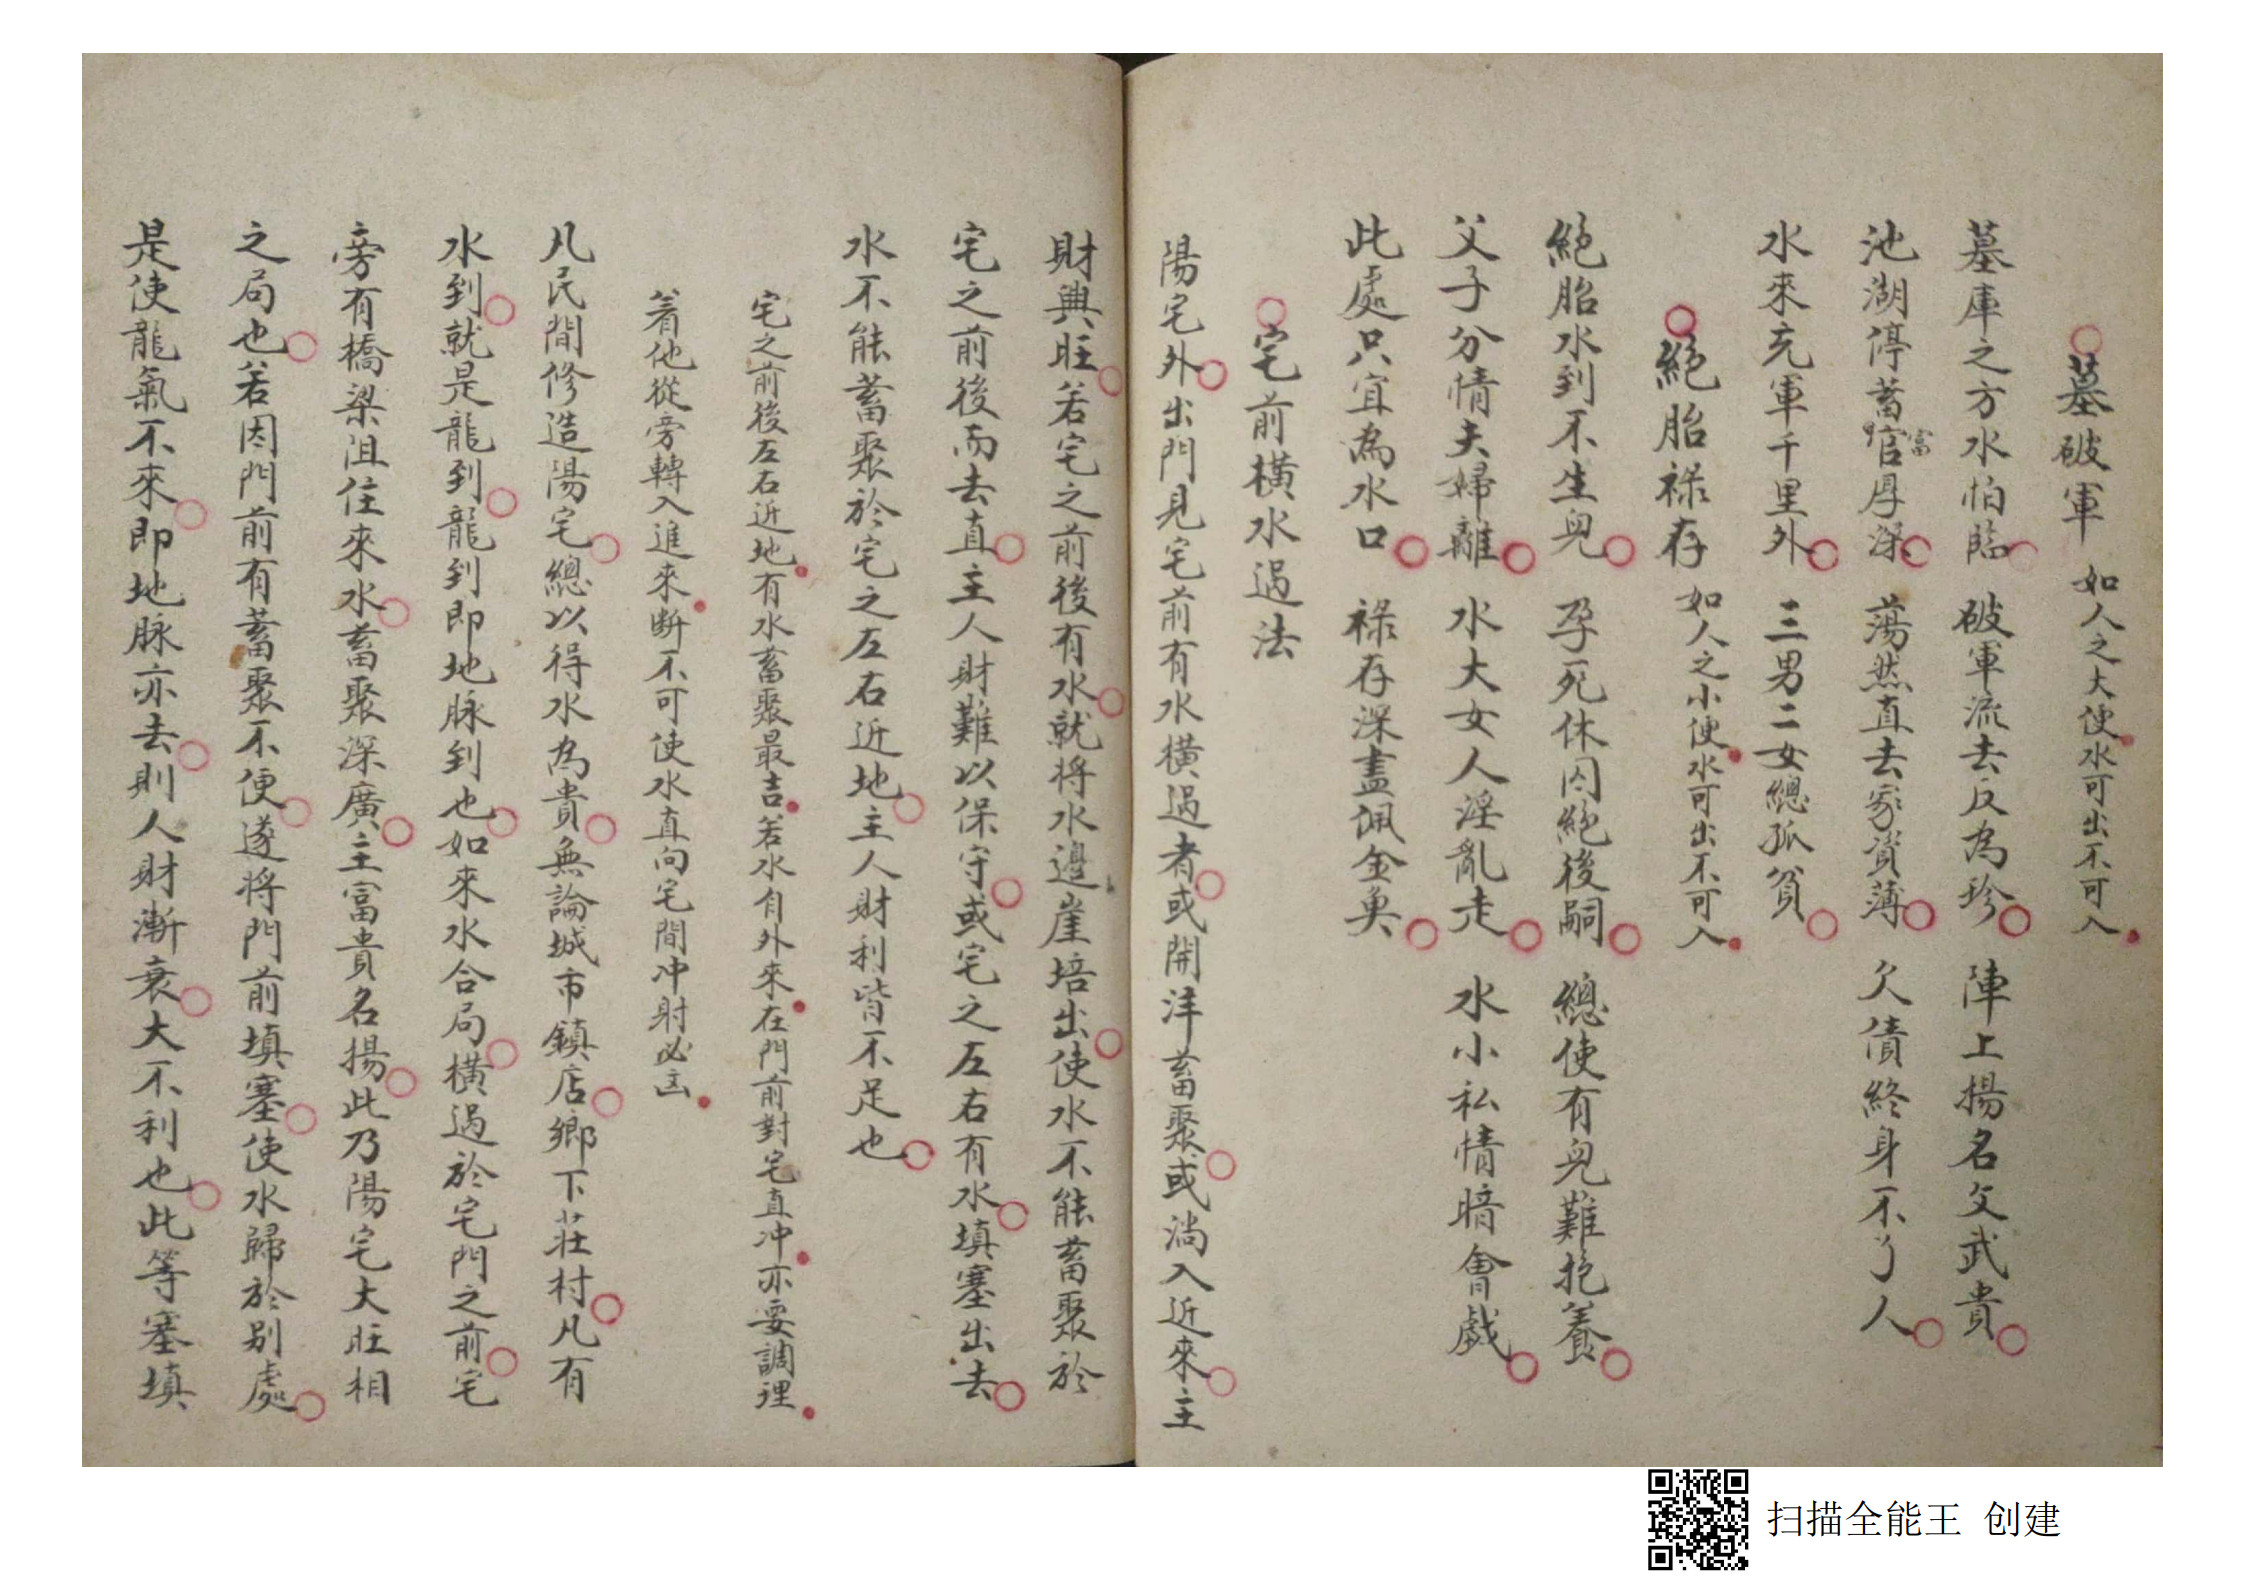 墓破軍 如人之大便水可出不可入
墓庫之方水怕臨 破軍流去反為珍 陣上揚名文武貴
池湖停蓄富官厚深 蕩然直去家資薄 欠債終身不了人
水來充軍千里外 三男二女總孤貧
絕胎祿存 如人之小便水可出不可入
絕胎水到不生兒 孕死休囚絕後嗣 總使有兒難抱養
父子分情夫婦離 水大女人淫亂走 水小私情暗會戲
此處只宜為水口 祿存深盡佩金魚
宅前橫水過法
陽宅外出門見宅前有水橫過者或開洋蓄聚或淌入近來主
財興旺若宅之前後有水就将水邊崖培出使水不能蓄聚於
宅之前後而去直主人財難以保守或宅之左右有水填塞出去
水不能蓄聚於宅之左右近地主人財利皆不足也
宅之前後左右近地有水蓄聚最吉若水自外來在門前對宅直冲亦要調理
着他從旁轉入進來断不可使水直向宅間冲射必凶
凡民間修造陽宅總以得水為貴無論城市鎮店鄉下莊村凡有
水到就是龍到龍到即地脉到也如來水合局橫過於宅門之前宅
旁有橋梁沮住來水蓄聚深廣主富貴名揚此乃陽宅大旺相
之局也若因門前有蓄聚不便遂将門前填塞使水歸於别處
是使龍氣不來即地脉亦去則人財漸衰大不利也此等塞填
扫描全能王 创建